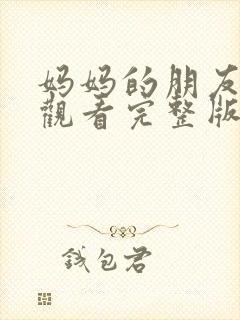 妈妈的朋友
觀看完整版
钱包君